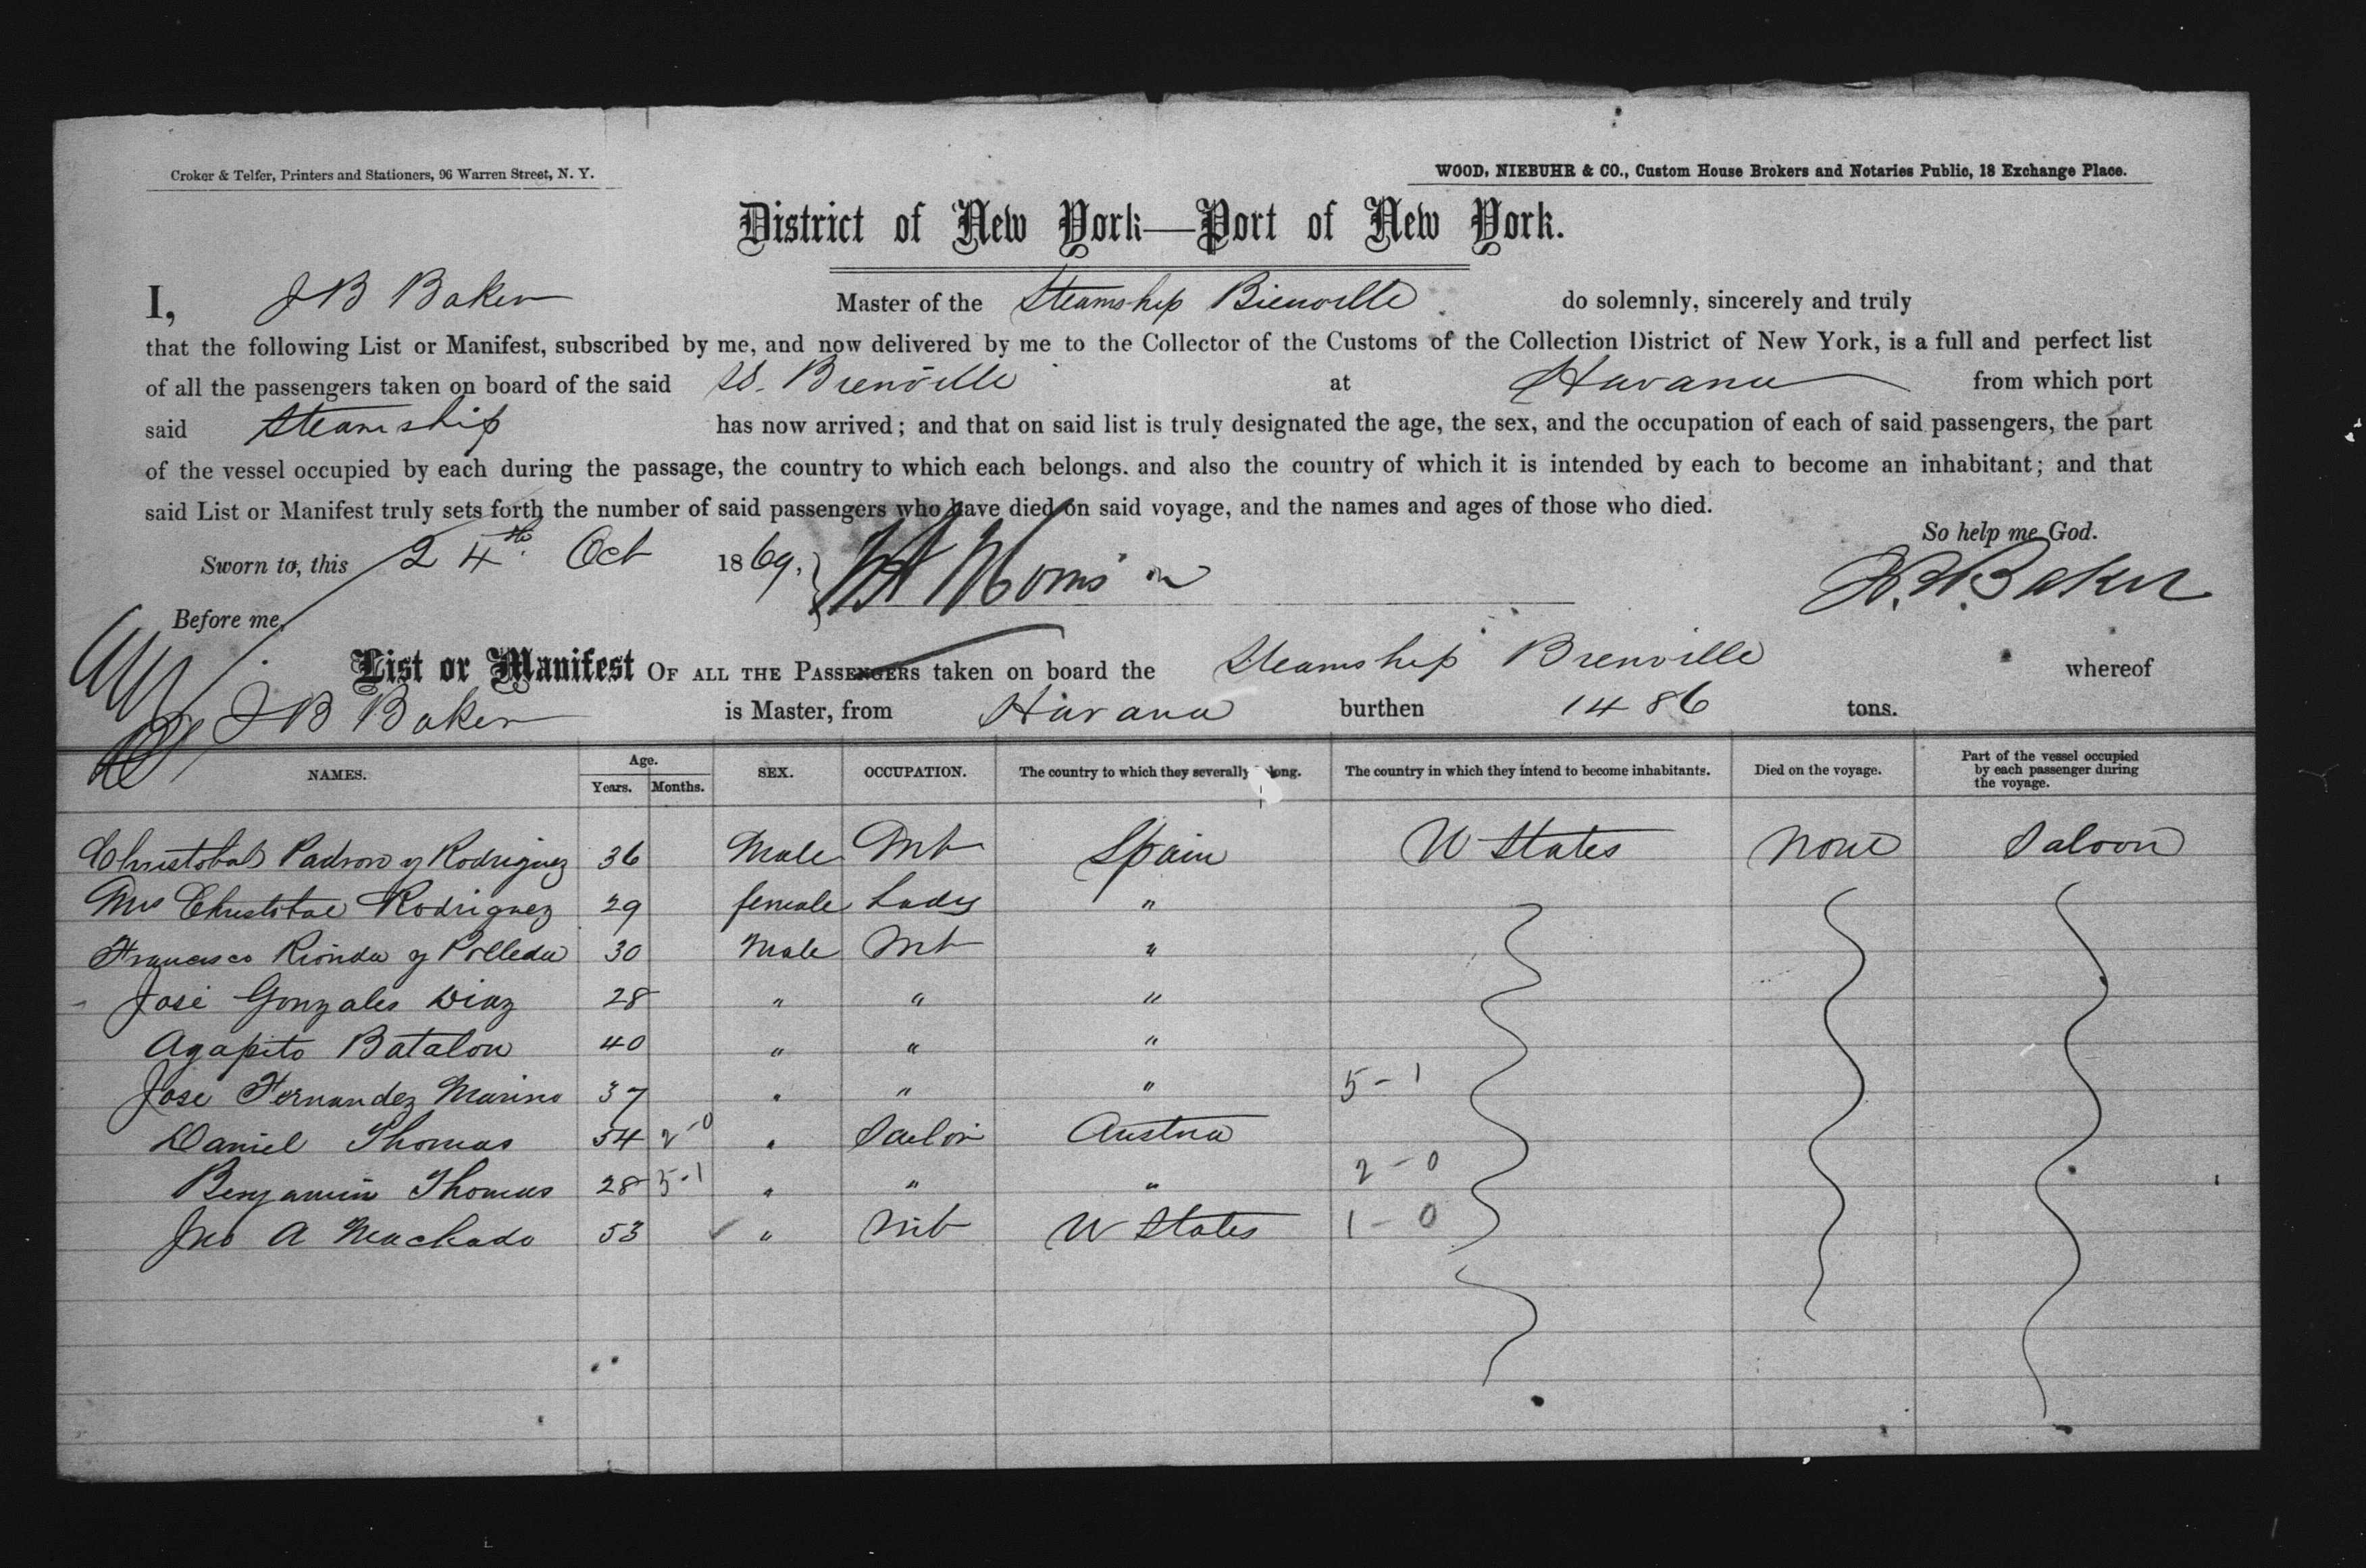 Croker & Telfer, Printers and Stationers, 96 Warren Street, N. Y.
WOOD, NIEBUHR & CO., Custom House Brokers and Notaries Public, 18 Exchange Place.
District of New York—Port of New York.
I, J B Baker Master of the Steamship Bienville do solemnly, sincerely and truly
that the following List or Manifest, subscribed by me, and now delivered by me to the Collector of the Customs of the Collection District of New York, is a full and perfect list
of all the passengers taken on board of the said SS. Bienville at Havana from which port
said Steamship has now arrived; and that on said list is truly designated the age, the sex, and the occupation of each of said passengers, the part
of the vessel occupied by each during the passage, the country to which each belongs. and also the country of which it is intended by each to become an inhabitant; and that
said List or Manifest truly sets forth the number of said passengers who have died on said voyage, and the names and ages of those who died.
So help me God.
Sworn to, this 24th Oct 1869, J. B. Baker
Before me,
List or Manifest OF ALL THE PASSENGERS taken on board the Steamship Bienville whereof
J B Baker is Master, from Havana burthen 1486 tons.
NAMES. Age. Years. Months. SEX. OCCUPATION. The country to which they severally belong. The country in which they intend to become inhabitants. Died on the voyage. Part of the vessel occupied by each passenger during the voyage.
Christobal Padron y Rodriguez 36 Male Mt Spain U States None Saloon
Mrs Christobal Rodriguez 29 female Lady "
Francisco Rionda y Polledo 30 Male Mt "
José Gonzales Diaz 28 " " "
Agapito Batalon 40 " " "
Jose Fernandez Marino 37 " " " 5-1
Daniel Thomas 54 2-0 " Sailor Austria
Benjamin Thomas 28 5-1 " " " 2-0
Jno A Machado 53 " Mt U States 1-0